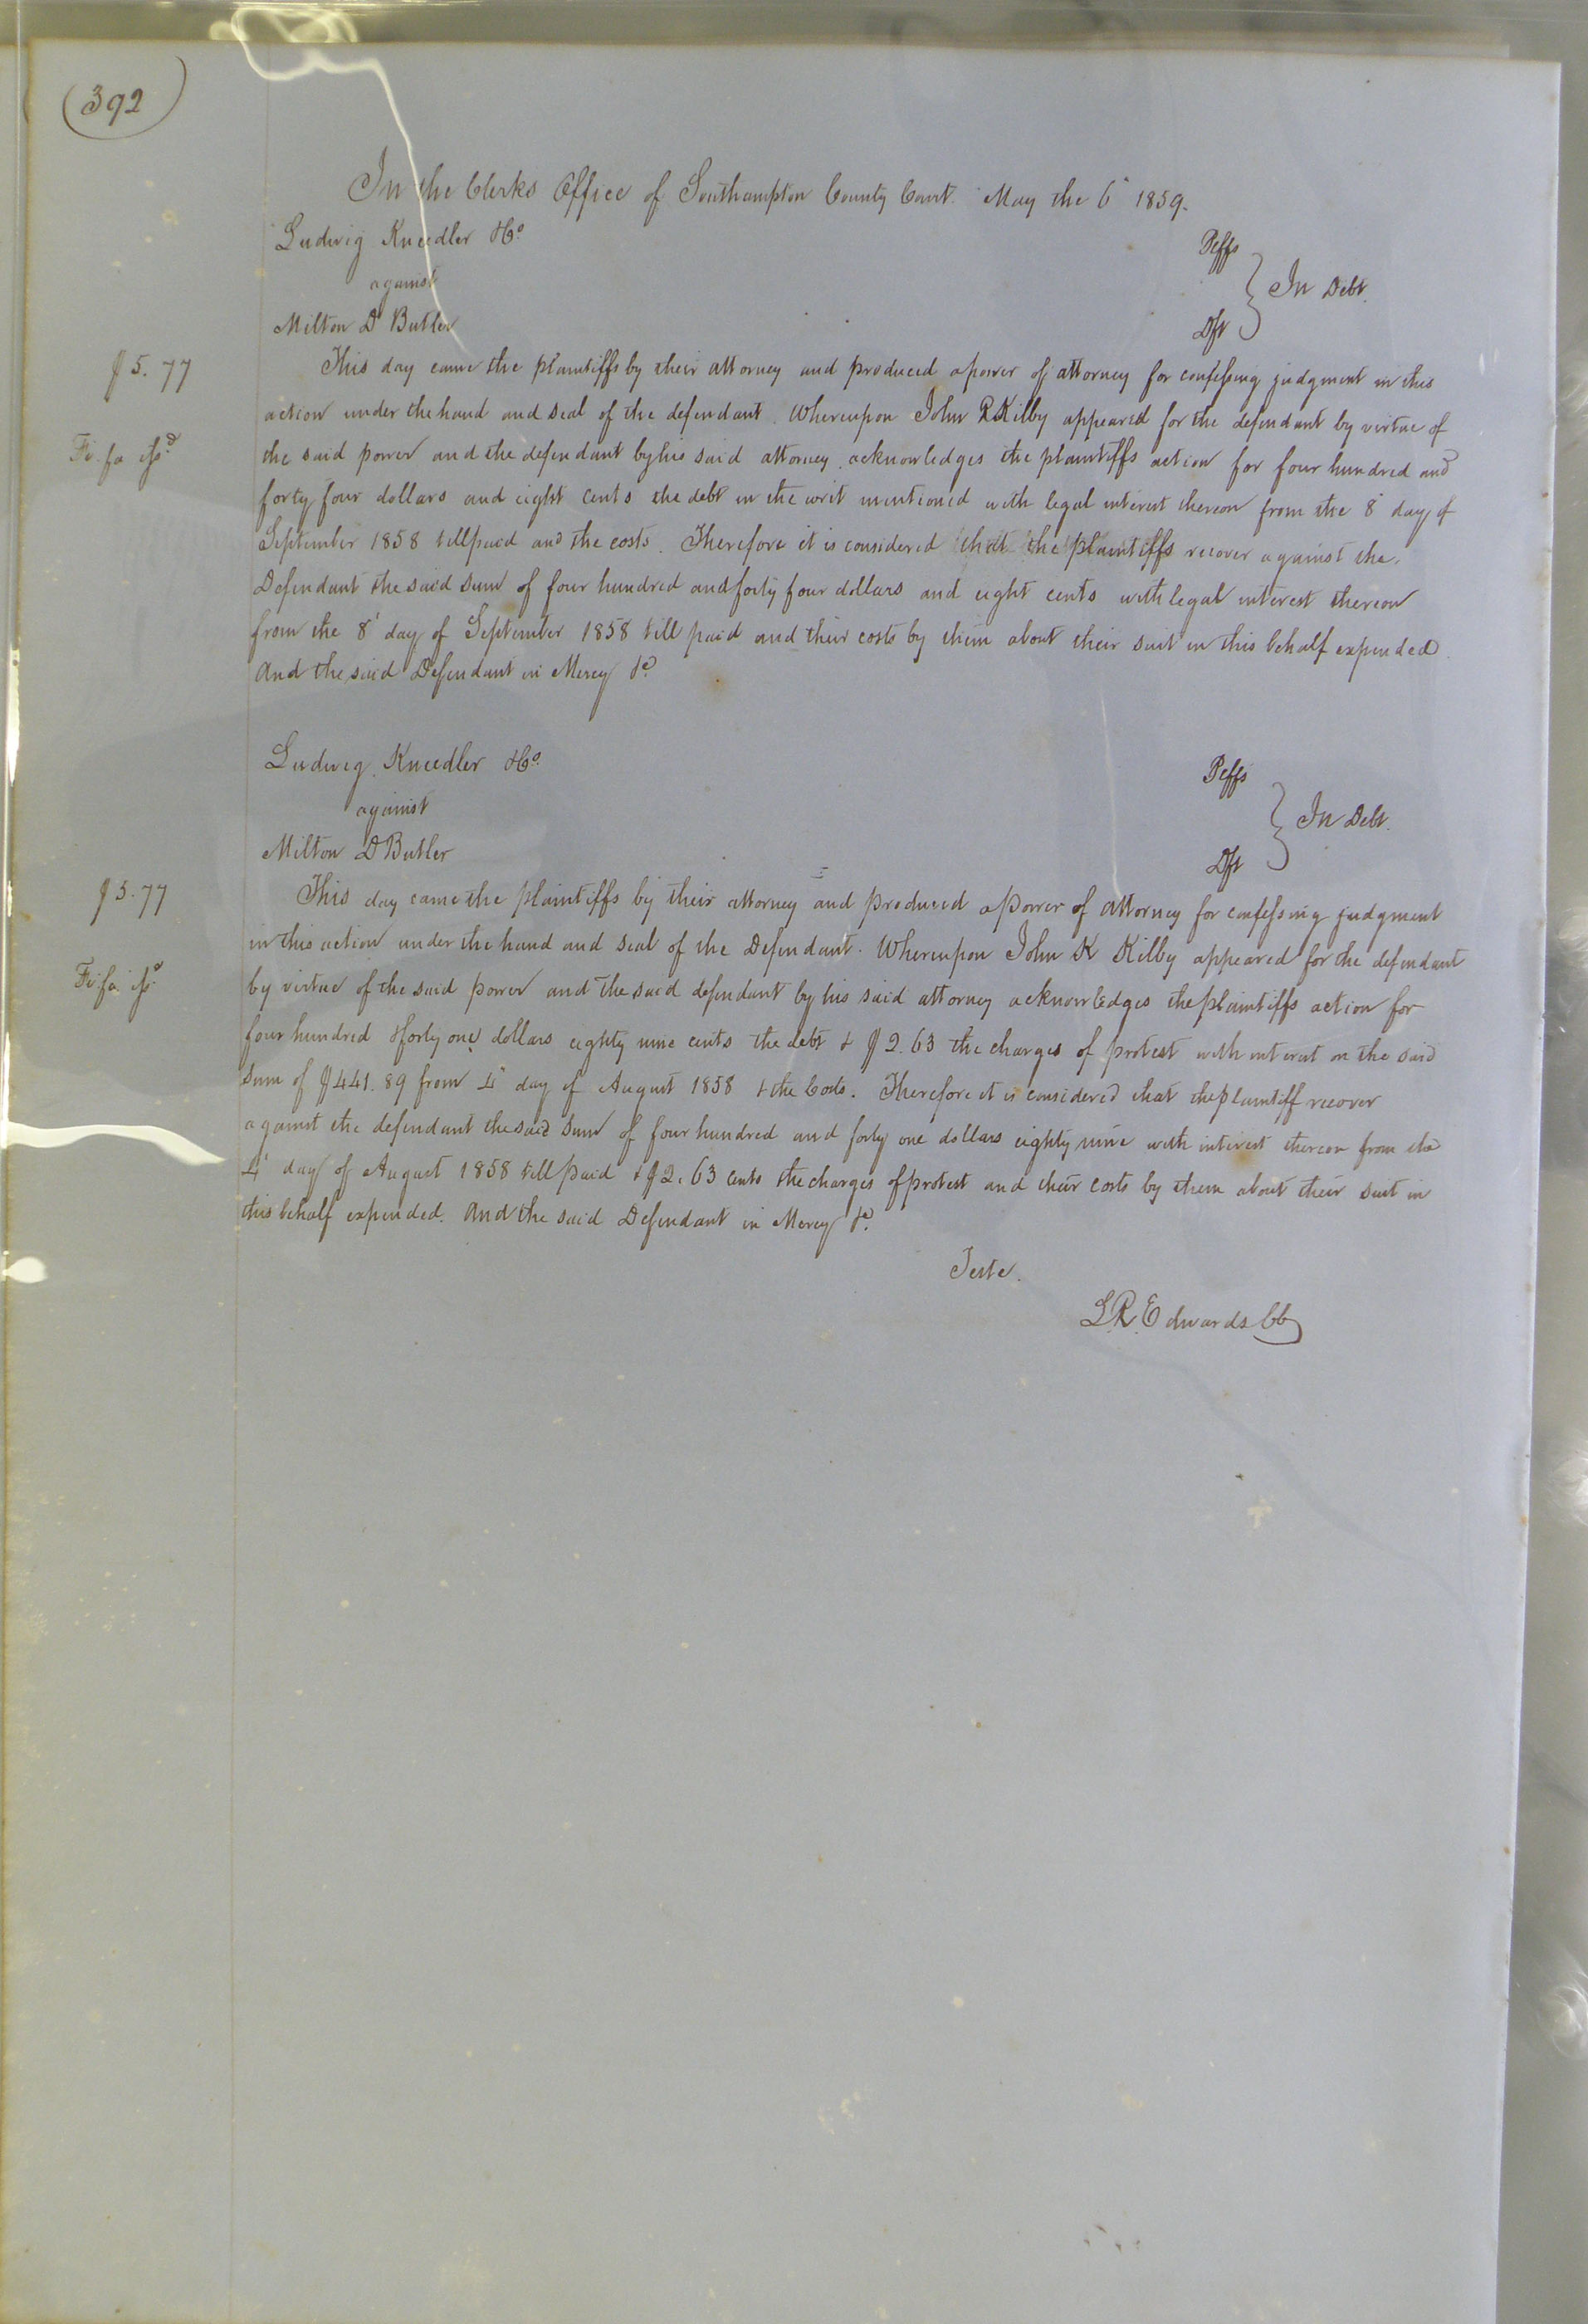 (392)
In the Clerks Office of Southampton County Court. May the 6" 1859.
Ludwig Kneedler &Co. Plffs
against } In Debt.
Milton D Butler Dft
$5.77 This day came the plaintiffs by their attorney and produced a power of attorney for confessing judgment in this
action under the hand and seal of the defendant. Whereupon John R Kilby appeared for the defendant by virtue of
Fi. fa issd the said power and the defendant by his said attorney acknowledges the plaintiffs action for four hundred and
forty four dollars and eight cents the debt in the writ mentioned with legal interest thereon from the 8" day of
September 1858 till paid and the costs. Therefore it is considered that the plaintiffs recover against the
Defendant the said sum of four hundred and forty four dollars and eight cents with legal interest thereon
from the 8" day of September 1858 till paid and their costs by them about their suit in this behalf expended.
And the said Defendant in Mercy &c.
Ludwig Kneedler &Co. Plffs
against } In Debt.
Milton D Butler Dft
$5.77 This day came the plaintiffs by their attorney and produced a power of attorney for confessing judgment
in this action under the hand and seal of the Defendant. Whereupon John Kilby appeared for the defendant
Fi. fa. issd. by virtue of the said power and the said defendant by his said attorney acknowledges the plaintiffs action for
four hundred & forty one dollars eighty nine cents the debt & $2.63 the charges of protest with interest on the said
sum of $441.89 from 4" day of August 1858 & the Costs. Therefore it is considered that the plaintiff recover
against the defendant the said sum of four hundred and forty one dollars eighty nine with interest thereon from the
4" day of August 1858 till paid & $2.63 cents the charges of protest and their costs by them about their suit in
this behalf expended. And the said Defendant in Mercy &c.
Teste.
L.R. Edwards CC